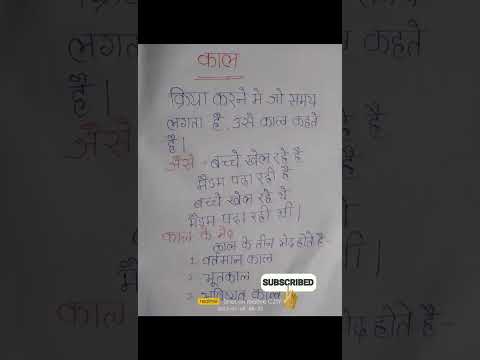 काल
क्रिया करने में जो समय
लगता है, उसे काल कहते
है।
जैसे - बच्चे खेल रहे है
मैडम पढा रही है
बच्चे खेल रहे थे
मैडम पढा रही थी।
काल के भेद
काल के तीन भेद होते है-
1. वर्तमान काल
2. भूतकाल
3. भविष्यत काल
SUBSCRIBED
realme Shot on realme C21Y